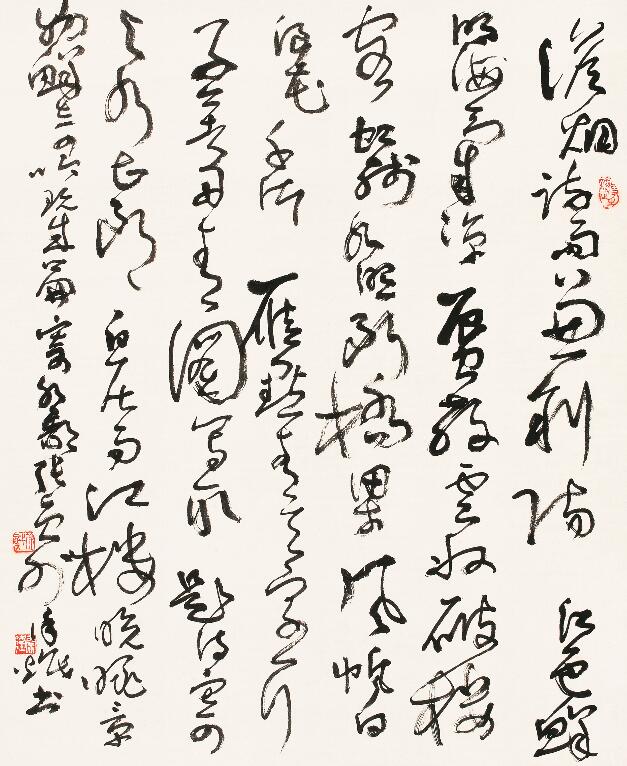 澹烟疏雨间斜阳江色鲜
明海气凉蜃散云收破楼
阁虹残水照断桥梁风翻白
浪花千片雁点青天字一行
好著丹青图写取题诗寄
与水曹郎白居易江楼晚眺景
物鲜奇吟玩成篇寄水部张员外书